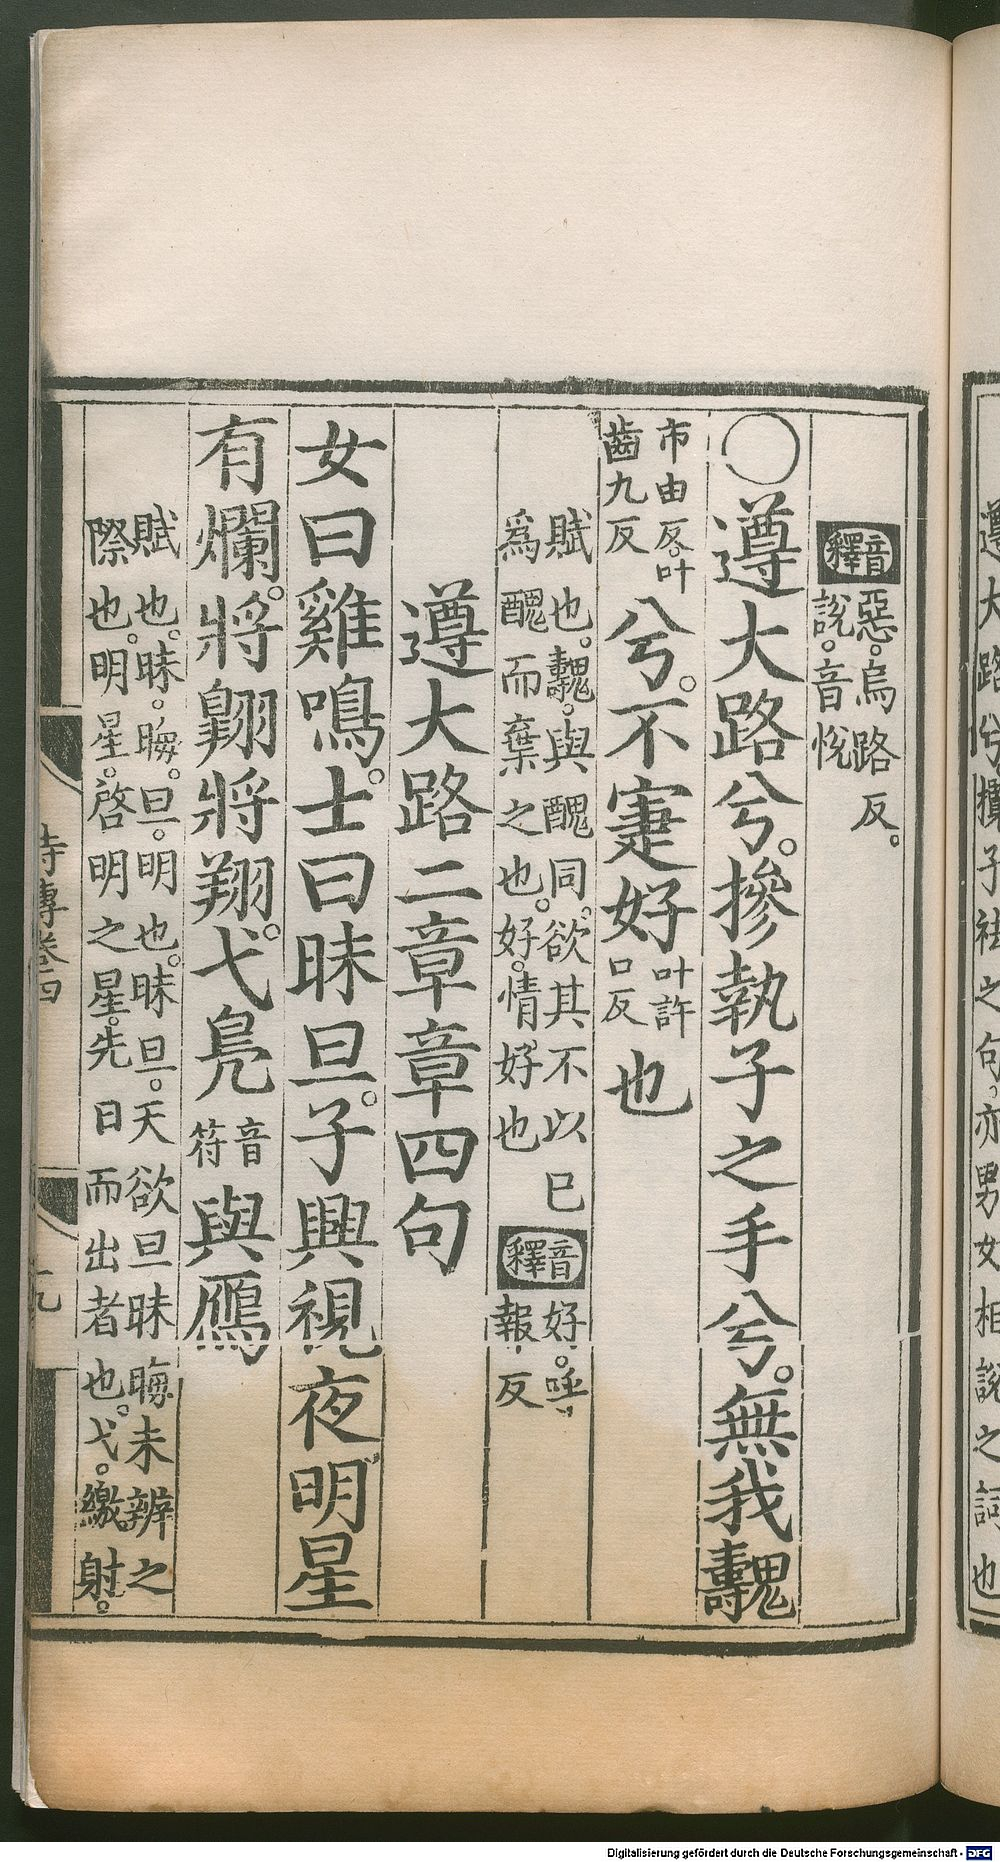 音釋 惡。烏路反。
說。音悅
○遵大路兮。摻執子之手兮。無我魗
市由反。叶
齒九反
兮。不寁好
叶許
口反
也
賦也。魗。與醜同。欲其不以已
爲醜而棄之也。好。情好也
音釋 好。呼
報反
遵大路二章章四句
女曰雞鳴。士曰昧旦。子興視夜明星
有爛。將翱將翔。弋鳧
音
符
與鴈
賦也。昧。晦。旦。明也。昧旦。天欲旦昧晦未辨之
際也。明星。啓明之星。先日而出者也。弋。繳射。
詩傳卷四
遵大路兮摻子袪之句。亦男女相說之詞也
Digitalisierung gefördert durch die Deutsche Forschungsgemeinschaft - DFG